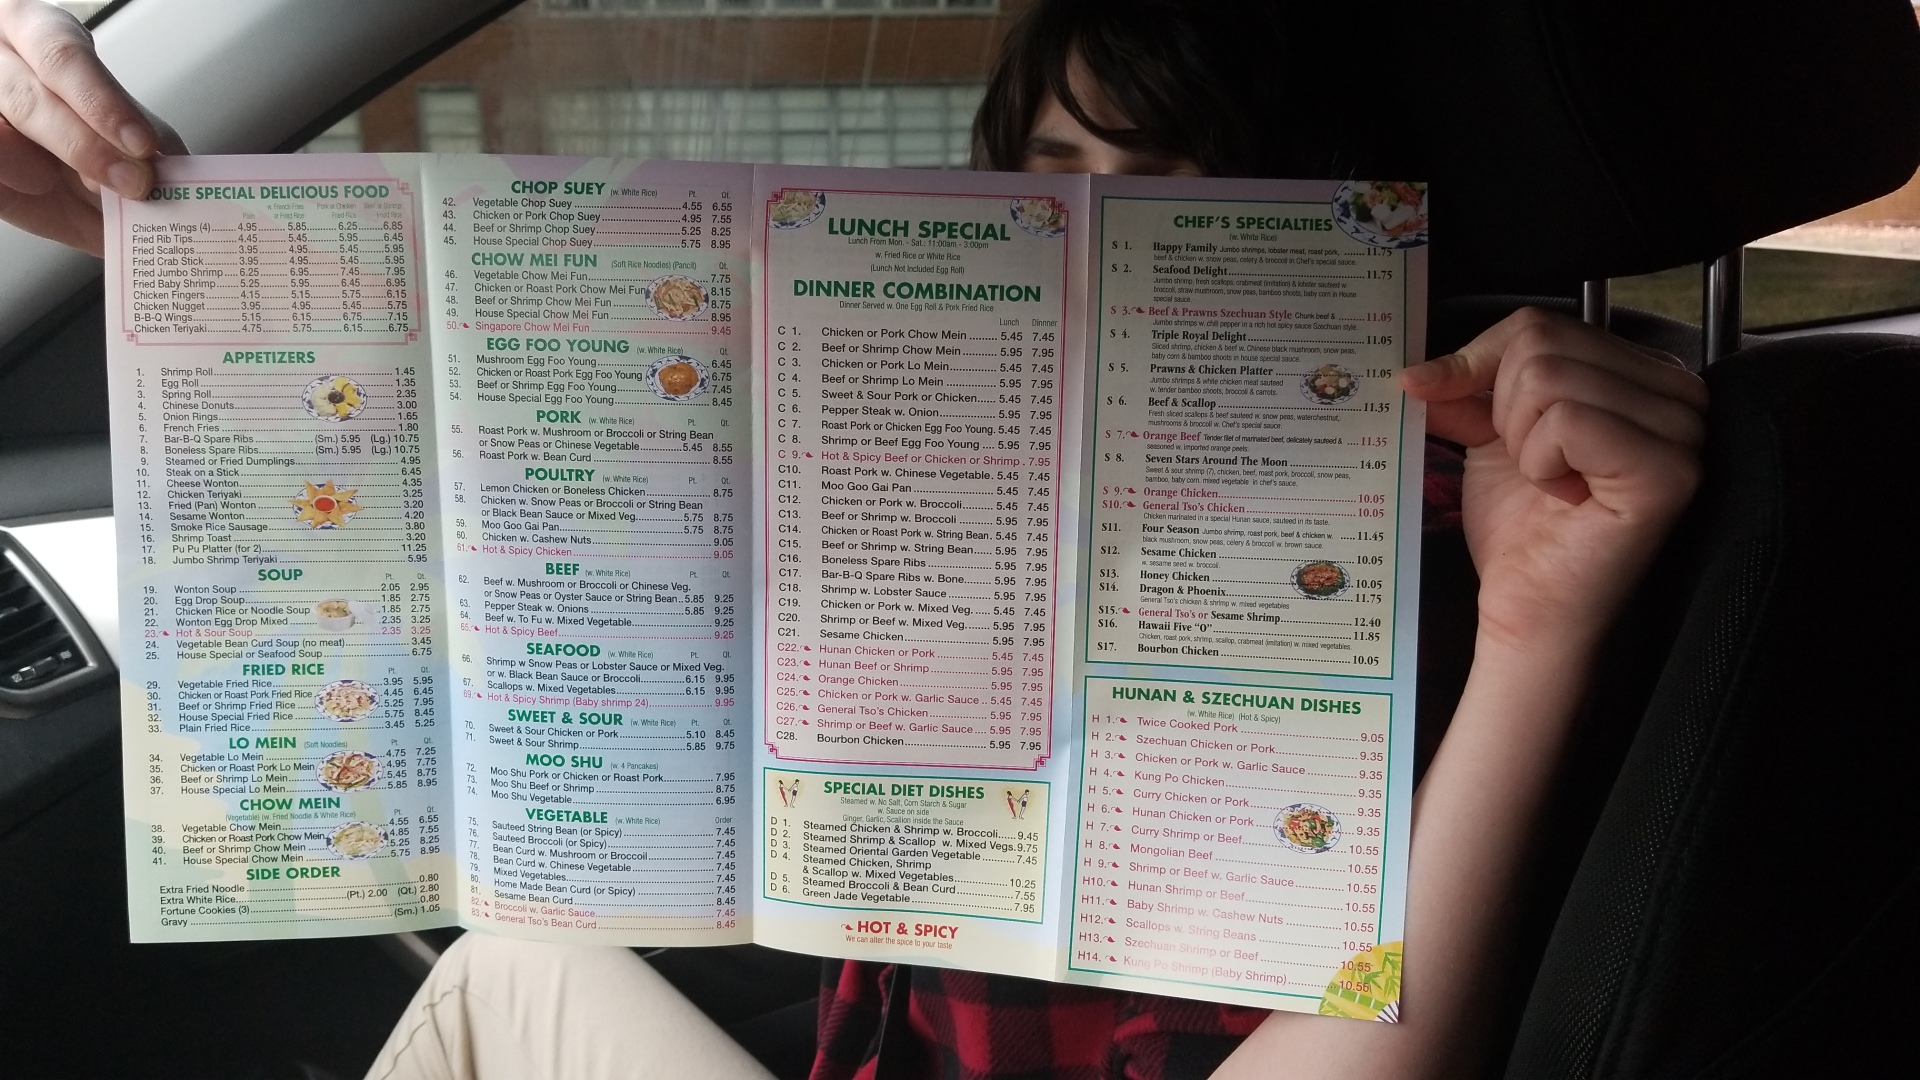 HOUSE SPECIAL DELICIOUS FOOD
Plain w. French Fries or Fried Rice Pork or Chicken Fried Rice Beef or Shrimp Fried Rice
Chicken Wings (4) 4.95 5.85 6.25 6.85
Fried Rib Tips 4.45 5.45 5.95 6.45
Fried Scallops 3.95 4.95 5.45 5.95
Fried Crab Stick 3.95 4.95 5.45 5.95
Fried Jumbo Shrimp 6.25 6.95 7.45 7.95
Fried Baby Shrimp 5.25 5.95 6.45 6.95
Chicken Fingers 4.15 5.15 5.75 6.15
Chicken Nugget 3.95 4.95 5.45 5.75
B-B-Q Wings 5.15 6.15 6.75 7.15
Chicken Teriyaki 4.75 5.75 6.15 6.75
APPETIZERS
1. Shrimp Roll 1.45
2. Egg Roll 1.35
3. Spring Roll 2.35
4. Chinese Donuts 3.00
5. Onion Rings 1.65
6. French Fries 1.80
7. Bar-B-Q Spare Ribs (Sm.) 5.95 (Lg.) 10.75
8. Boneless Spare Ribs (Sm.) 5.95 (Lg.) 10.75
9. Steamed or Fried Dumplings 4.95
10. Steak on a Stick 6.45
11. Cheese Wonton 4.35
12. Chicken Teriyaki 3.25
13. Fried (Pan) Wonton 3.20
14. Sesame Wonton 4.20
15. Smoke Rice Sausage 3.80
16. Shrimp Toast 3.20
17. Pu Pu Platter (for 2) 11.25
18. Jumbo Shrimp Teriyaki 5.95
SOUP Pt. Qt.
19. Wonton Soup 2.05 2.95
20. Egg Drop Soup 1.85 2.75
21. Chicken Rice or Noodle Soup 1.85 2.75
22. Wonton Egg Drop Mixed 2.35 3.25
23. Hot & Sour Soup 2.35 3.25
24. Vegetable Bean Curd Soup (no meat) 3.45
25. House Special or Seafood Soup 6.75
FRIED RICE Pt. Qt.
29. Vegetable Fried Rice 3.95 5.95
30. Chicken or Roast Pork Fried Rice 4.45 6.45
31. Beef or Shrimp Fried Rice 5.25 7.95
32. House Special Fried Rice 5.75 8.45
33. Plain Fried Rice 3.45 5.25
LO MEIN (Soft Noodles) Pt. Qt.
34. Vegetable Lo Mein 4.75 7.25
35. Chicken or Roast Pork Lo Mein 4.95 7.75
36. Beef or Shrimp Lo Mein 5.45 8.75
37. House Special Lo Mein 5.85 8.95
CHOW MEIN Pt. Qt.
(Vegetable) (w. Fried Noodle & White Rice)
38. Vegetable Chow Mein 4.55 6.55
39. Chicken or Roast Pork Chow Mein 4.85 7.55
40. Beef or Shrimp Chow Mein 5.25 8.25
41. House Special Chow Mein 5.75 8.95
SIDE ORDER
Extra Fried Noodle 0.80
Extra White Rice (Pt.) 2.00 (Qt.) 2.80
Fortune Cookies (3) 0.80
Gravy (Sm.) 1.05
CHOP SUEY (w. White Rice) Pt. Qt.
42. Vegetable Chop Suey 4.55 6.55
43. Chicken or Pork Chop Suey 4.95 7.55
44. Beef or Shrimp Chop Suey 5.25 8.25
45. House Special Chop Suey 5.75 8.95
CHOW MEI FUN (Soft Rice Noodles) (Pancit) Qt.
46. Vegetable Chow Mei Fun 7.75
47. Chicken or Roast Pork Chow Mei Fun 8.15
48. Beef or Shrimp Chow Mei Fun 8.75
49. House Special Chow Mei Fun 8.95
50. Singapore Chow Mei Fun 9.45
EGG FOO YOUNG (w. White Rice) Qt.
51. Mushroom Egg Foo Young 6.45
52. Chicken or Roast Pork Egg Foo Young 6.75
53. Beef or Shrimp Egg Foo Young 7.45
54. House Special Egg Foo Young 8.45
PORK (w. White Rice) Pt. Qt.
55. Roast Pork w. Mushroom or Broccoli or String Bean
or Snow Peas or Chinese Vegetable 5.45 8.55
56. Roast Pork w. Bean Curd 8.55
POULTRY (w. White Rice) Pt. Qt.
57. Lemon Chicken or Boneless Chicken 8.75
58. Chicken w. Snow Peas or Broccoli or String Bean
or Black Bean Sauce or Mixed Veg. 5.75 8.75
59. Moo Goo Gai Pan 5.75 8.75
60. Chicken w. Cashew Nuts 9.05
61. Hot & Spicy Chicken 9.05
BEEF (w. White Rice) Pt. Qt.
62. Beef w. Mushroom or Broccoli or Chinese Veg.
or Snow Peas or Oyster Sauce or String Bean 5.85 9.25
63. Pepper Steak w. Onions 5.85 9.25
64. Beef w. To Fu w. Mixed Vegetable 9.25
65. Hot & Spicy Beef 9.25
SEAFOOD (w. White Rice) Pt. Qt.
66. Shrimp w Snow Peas or Lobster Sauce or Mixed Veg.
or w. Black Bean Sauce or Broccoli 6.15 9.95
67. Scallops w. Mixed Vegetables 6.15 9.95
69. Hot & Spicy Shrimp (Baby shrimp 24) 9.95
SWEET & SOUR (w. White Rice) Pt. Qt.
70. Sweet & Sour Chicken or Pork 5.10 8.45
71. Sweet & Sour Shrimp 5.85 9.75
MOO SHU (w. 4 Pancakes)
72. Moo Shu Pork or Chicken or Roast Pork 7.95
73. Moo Shu Beef or Shrimp 8.75
74. Moo Shu Vegetable 6.95
VEGETABLE (w. White Rice) Order
75. Sauteed String Bean (or Spicy) 7.45
76. Sauteed Broccoli (or Spicy) 7.45
77. Bean Curd w. Mushroom or Broccoli 7.45
78. Bean Curd w. Chinese Vegetable 7.45
79. Mixed Vegetables 7.45
80. Home Made Bean Curd (or Spicy) 7.45
81. Sesame Bean Curd 8.45
82. Broccoli w. Garlic Sauce 7.45
83. General Tso's Bean Curd 8.45
LUNCH SPECIAL
Lunch From Mon. - Sat.: 11:00am - 3:00pm
w. Fried Rice or White Rice
(Lunch Not Included Egg Roll)
DINNER COMBINATION
Dinner Served w. One Egg Roll & Pork Fried Rice
Lunch Dinnner
C 1. Chicken or Pork Chow Mein 5.45 7.45
C 2. Beef or Shrimp Chow Mein 5.95 7.95
C 3. Chicken or Pork Lo Mein 5.45 7.45
C 4. Beef or Shrimp Lo Mein 5.95 7.95
C 5. Sweet & Sour Pork or Chicken 5.45 7.45
C 6. Pepper Steak w. Onion 5.95 7.95
C 7. Roast Pork or Chicken Egg Foo Young. 5.45 7.45
C 8. Shrimp or Beef Egg Foo Young 5.95 7.95
C 9. Hot & Spicy Beef or Chicken or Shrimp 7.95
C10. Roast Pork w. Chinese Vegetable 5.45 7.45
C11. Moo Goo Gai Pan 5.45 7.45
C12. Chicken or Pork w. Broccoli 5.45 7.45
C13. Beef or Shrimp w. Broccoli 5.95 7.95
C14. Chicken or Roast Pork w. String Bean 5.45 7.45
C15. Beef or Shrimp w. String Bean 5.95 7.95
C16. Boneless Spare Ribs 5.95 7.95
C17. Bar-B-Q Spare Ribs w. Bone 5.95 7.95
C18. Shrimp w. Lobster Sauce 5.95 7.95
C19. Chicken or Pork w. Mixed Veg. 5.45 7.45
C20. Shrimp or Beef w. Mixed Veg. 5.95 7.95
C21. Sesame Chicken 5.95 7.95
C22. Hunan Chicken or Pork 5.45 7.45
C23. Hunan Beef or Shrimp 5.95 7.95
C24. Orange Chicken 5.95 7.95
C25. Chicken or Pork w. Garlic Sauce 5.45 7.45
C26. General Tso's Chicken 5.95 7.95
C27. Shrimp or Beef w. Garlic Sauce 5.95 7.95
C28. Bourbon Chicken 5.95 7.95
SPECIAL DIET DISHES
Steamed w. No Salt, Corn Starch & Sugar
w. Sauce on side
Ginger, Garlic, Scallion inside the Sauce
D 1. Steamed Chicken & Shrimp w. Broccoli 9.45
D 2. Steamed Shrimp & Scallop w. Mixed Vegs. 9.75
D 3. Steamed Oriental Garden Vegetable 7.45
D 4. Steamed Chicken, Shrimp
& Scallop w. Mixed Vegetables 10.25
D 5. Steamed Broccoli & Bean Curd 7.55
D 6. Green Jade Vegetable 7.95
HOT & SPICY
We can alter the spice to your taste
CHEF'S SPECIALTIES
(w. White Rice)
S 1. Happy Family Jumbo shrimps, lobster meat, roast pork, 11.75
beef & chicken w. snow peas, celery & broccoli in Chef's special sauce.
S 2. Seafood Delight 11.75
Jumbo shrimp, fresh scallops, crabmeat (imitation) & lobster sauteed w.
broccoli, straw mushroom, snow peas, bamboo shoots, baby corn in House
special sauce.
S 3. Beef & Prawns Szechuan Style Chunk beef & 11.05
Jumbo shrimps w. chili pepper in a rich hot spicy sauce Szechuan style.
S 4. Triple Royal Delight 11.05
Sliced shrimp, chicken & beef w. Chinese black mushroom, snow peas,
baby corn & bamboo shoots in house special sauce.
S 5. Prawns & Chicken Platter 11.05
Jumbo shrimps & white chicken meat sauteed
w. tender bamboo shoots, broccoli & carrots.
S 6. Beef & Scallop 11.35
Fresh sliced scallops & beef sauteed w. snow peas, waterchestnut,
mushrooms & broccoli w. Chef's special sauce.
S 7. Orange Beef Tender filet of marinated beef, delicately sauteed & 11.35
seasoned w. imported orange peels.
S 8. Seven Stars Around The Moon 14.05
Sweet & sour shrimp (7), chicken, beef, roast pork, broccoli, snow peas,
bamboo, baby corn, mixed vegetable in chef's sauce.
S 9. Orange Chicken 10.05
S10. General Tso's Chicken 10.05
Chicken marinated in a special Hunan sauce, sauteed in its taste.
S11. Four Season Jumbo shrimp, roast pork, beef & chicken w. 11.45
black mushroom, snow peas, celery & broccoli w. brown sauce.
S12. Sesame Chicken 10.05
w. sesame seed w. broccoli.
S13. Honey Chicken 10.05
S14. Dragon & Phoenix 11.75
General Tso's chicken & shrimp w. mixed vegetables
S15. General Tso's or Sesame Shrimp 12.40
S16. Hawaii Five "O" 11.85
Chicken, roast pork, shrimp, scallop, crabmeat (imitation) w. mixed vegetables.
S17. Bourbon Chicken 10.05
HUNAN & SZECHUAN DISHES
(w. White Rice) (Hot & Spicy)
H 1. Twice Cooked Pork 9.05
H 2. Szechuan Chicken or Pork 9.35
H 3. Chicken or Pork w. Garlic Sauce 9.35
H 4. Kung Po Chicken 9.35
H 5. Curry Chicken or Pork 9.35
H 6. Hunan Chicken or Pork 9.35
H 7. Curry Shrimp or Beef 10.55
H 8. Mongolian Beef 10.55
H 9. Shrimp or Beef w. Garlic Sauce 10.55
H10. Hunan Shrimp or Beef 10.55
H11. Baby Shrimp w. Cashew Nuts 10.55
H12. Scallops w. String Beans 10.55
H13. Szechuan Shrimp or Beef 10.55
H14. Kung Po Shrimp (Baby Shrimp) 10.55